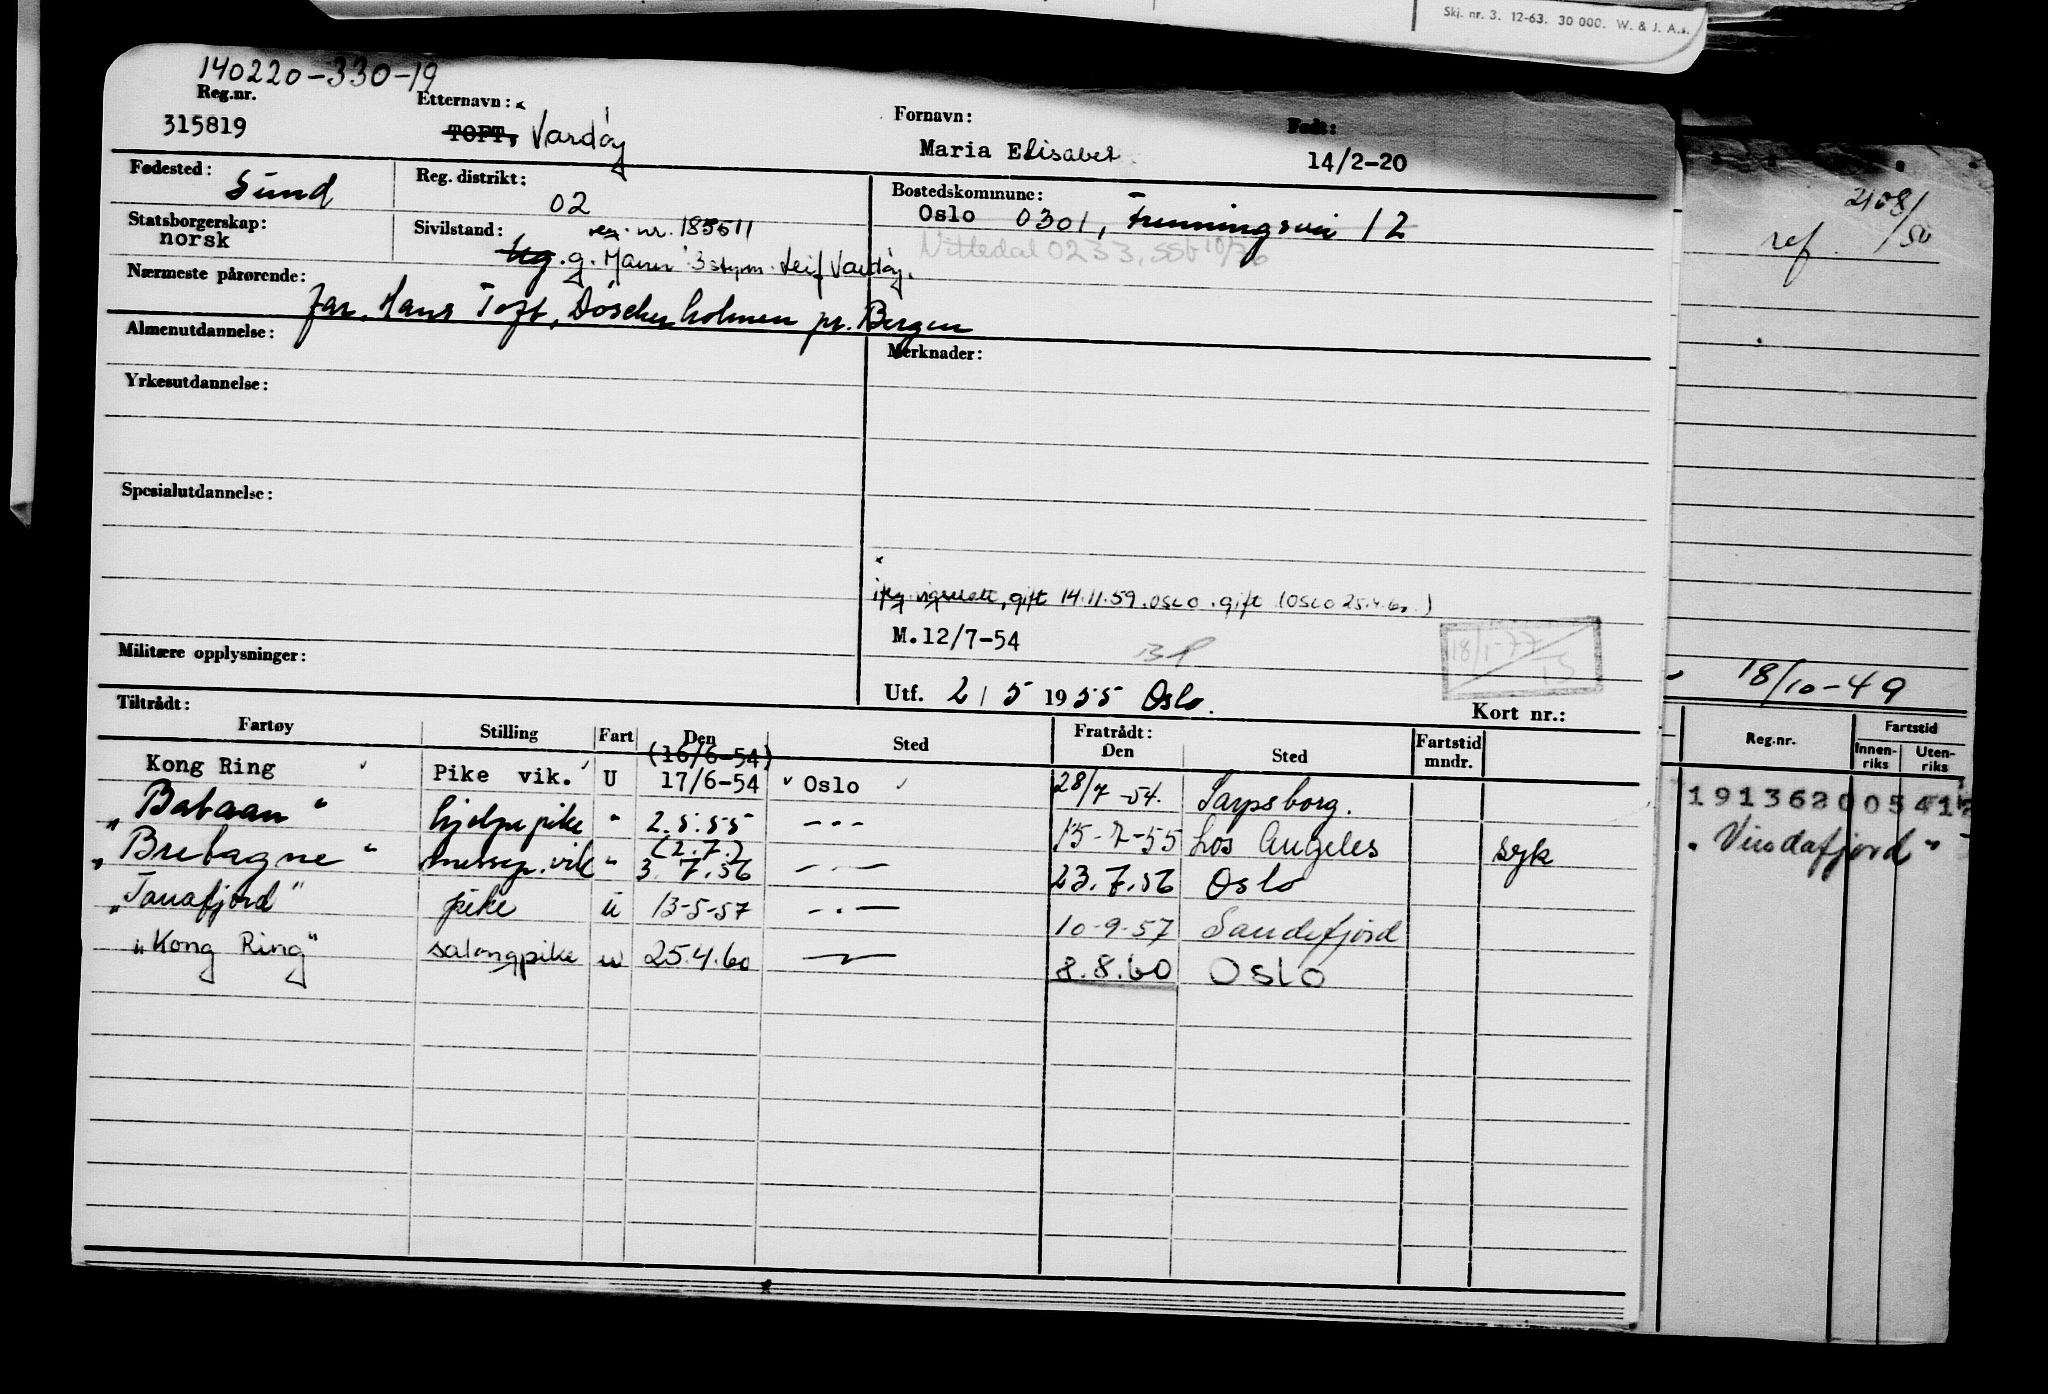 Skj. nr. 3. 12-63. 30 000. W. & J. A.s.
140220-330-19
Reg.nr. Etternavn: Fornavn: Født:
315819 TOFT, Vardøy Maria Elisabet 14/2-20
Fødested: Sund Reg. distrikt: 02 Bostedskommune: Oslo 0301, 12
Statsborgerskap: norsk Sivilstand: reg. nr. 185511 Nittedal 0233, 10/76
g. Mann 3 styrm. Leif Vardøy.
Nærmeste pårørende: far, Hans Toft, pr. Bergen
Almenutdannelse: Merknader:
Yrkesutdannelse:
Spesialutdannelse:
gift 14.11.59. OSLO. gift (OSLO 25.4.60.)
M.12/7-54
18/1-77
Militære opplysninger:
Utf. 2/5 1955 Oslo.
Kort nr.:
Tiltrådt: Fratrådt:
Fartøy Stilling Fart Den Sted Den Sted Fartstid mndr.
(16/6-54)
Kong Ring Pike vik. U 17/6-54 Oslo 28/7-54. Sarpsborg.
"Bataan" hjelpepike " 2.5.55 --- 15-7-55 Los Angeles syk
(2.7.)
"Bretagne" messep. vik " 3.7.56 -.- 23.7.56 Oslo
"Tanafjord" pike u 13-5-57 -.- 10-9-57 Sandefjord
"Kong Ring" salongpike u 25.4.60 8.8.60 OSLO
2108/50
ref.
18/10-49
Reg.nr. Fartstid
Innen-riks Uten-riks
"Vindafjord"